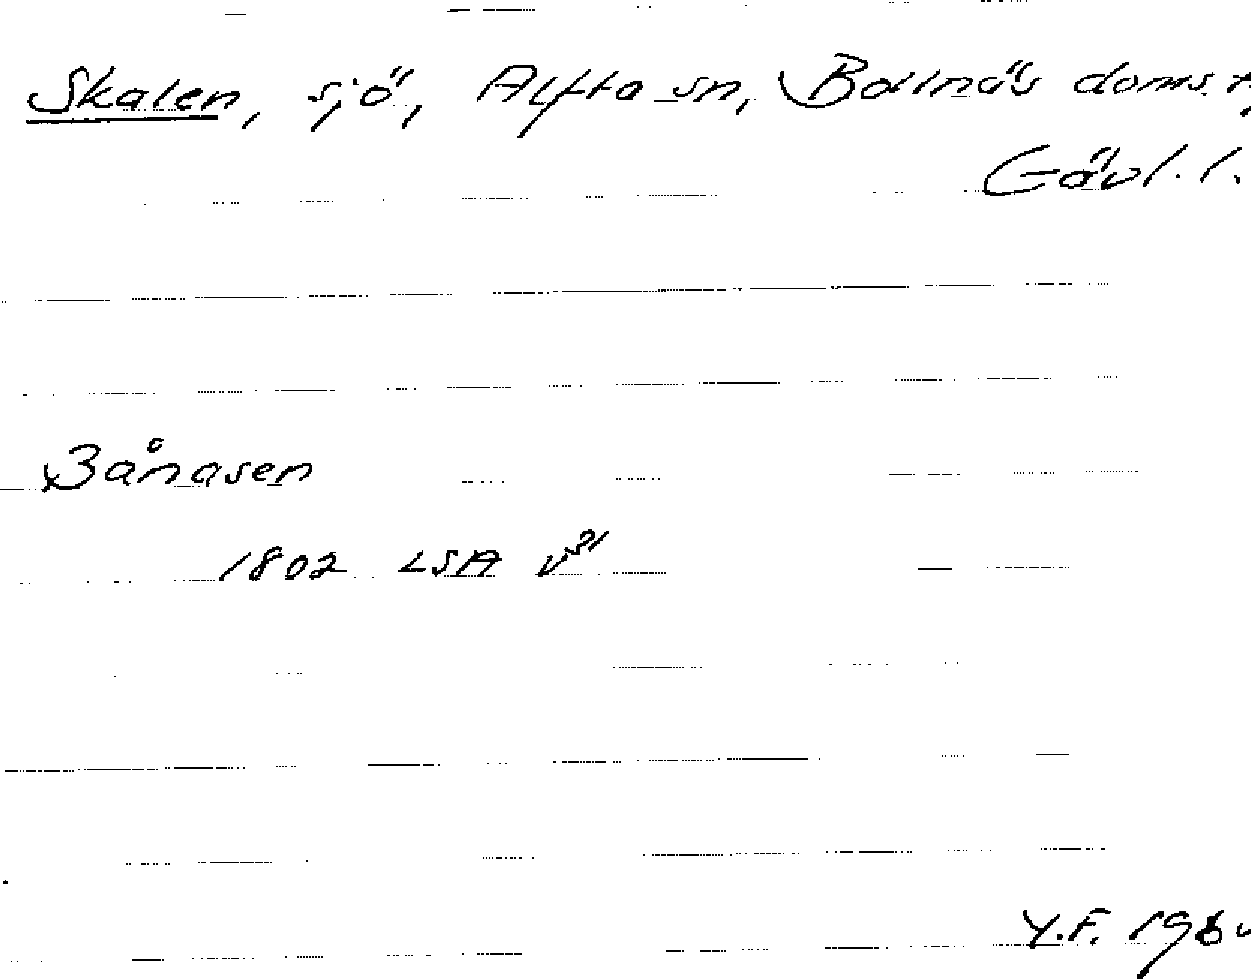 Skalen, sjö, Alfta sn, Bollnäs doms.
Gävl. l.
Bånåsen
1802 LSA v³¹
Y.F.